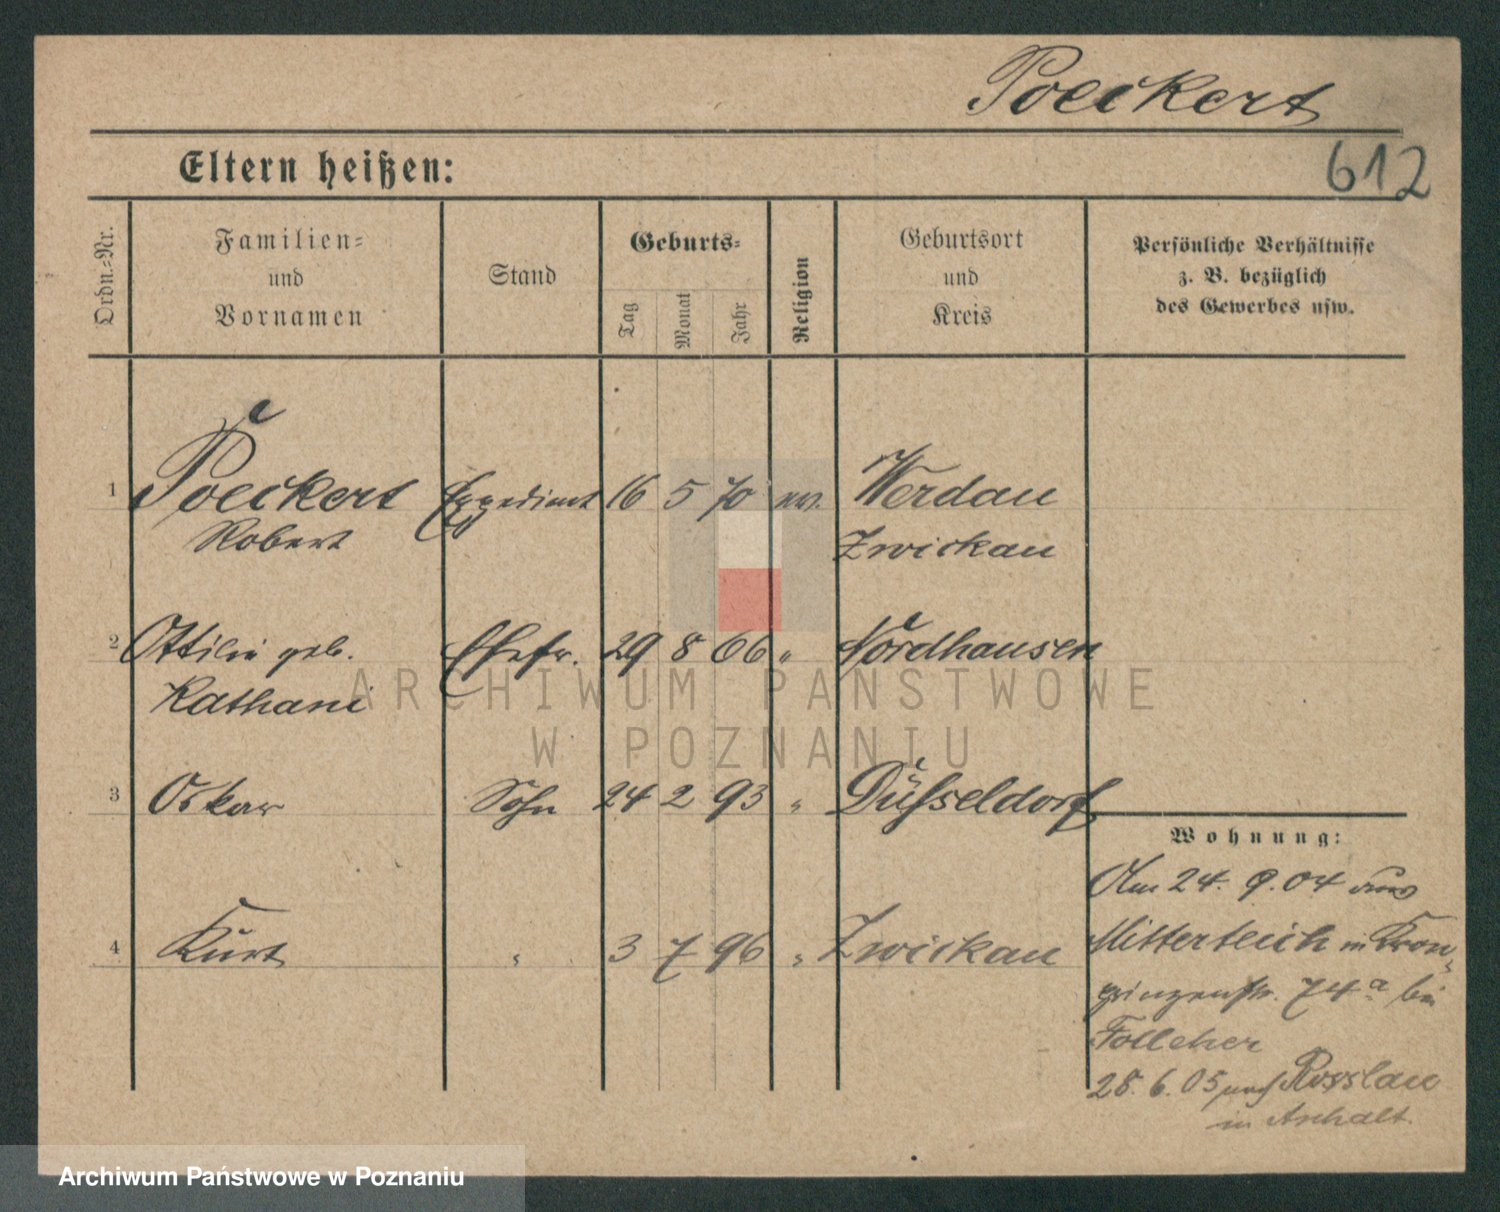 Poeckert
612
Eltern heißen:
Ordn.-Nr.
Familien-
und
Vornamen
Stand
Geburts-
Tag
Monat
Jahr
Religion
Geburtsort
und
Kreis
Persönliche Verhältnisse
z. B. bezüglich
des Gewerbes usw.
1 Poeckert Expedient 16 5 70 ev. Werdau
Robert Zwickau
2 Ottilie geb. Ehefr. 29 8 66 " Nordhausen
Kathani
3 Oskar Sohn 24 2 93 " Düsseldorf
Wohnung:
Am 24. 9. 04 aus
4 Kurt " 3 7 96 " Zwickau
Mitterteich in Kron-
prinzenstr. 74a bei
28. 6. 05 nach Rosslau
in Anhalt.
ARCHIWUM PAŃSTWOWE
W POZNANIU
Archiwum Państwowe w Poznaniu